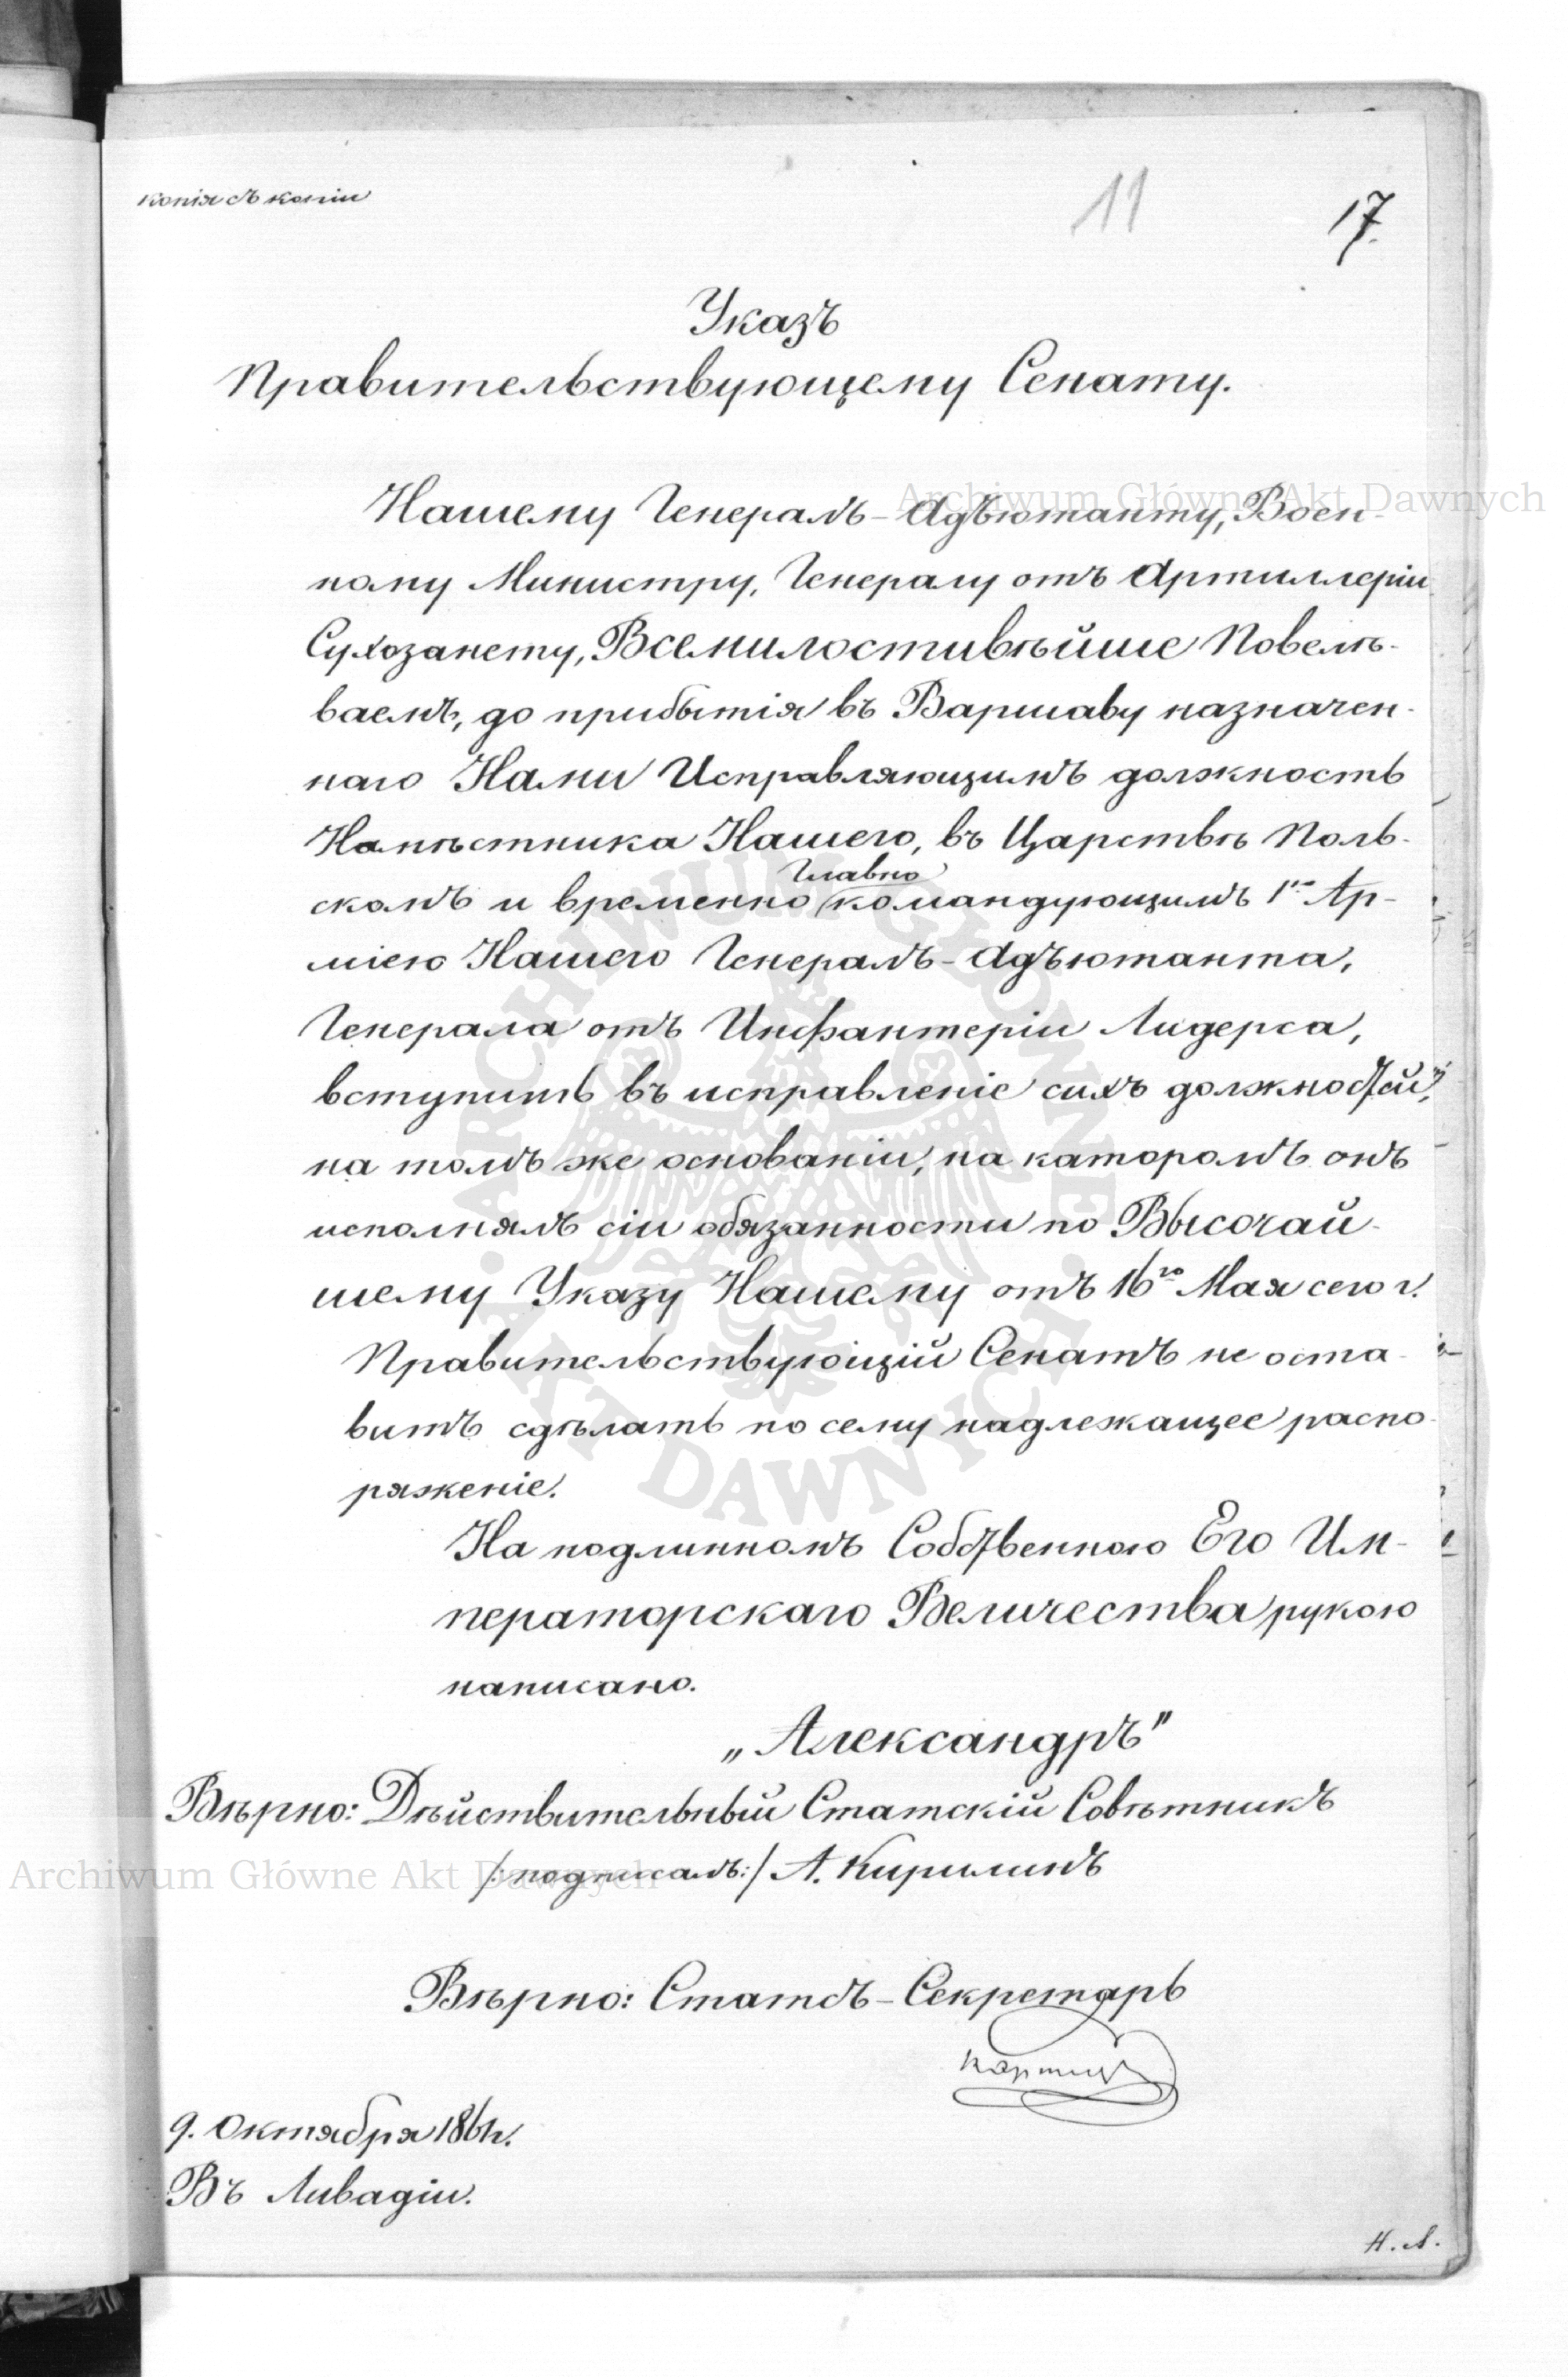 копія съ копіи
11
17.
Указъ
Правительствующему Сенату.
Нашему Генералъ-Адъютанту, Воен-
ному Министру, Генералу отъ Артиллеріи
Сухозанету, Всемилостивѣйше Повелѣ-
ваемъ, до прибытія въ Варшаву назначен-
наго Нами Исправляющимъ должность
Намѣстника Нашего, въ Царствѣ Поль-
скомъ и временно Главно командующимъ 1ю Ар-
міею Нашего Генералъ-Адъютанта,
Генерала отъ Инфантеріи Лидерса,
вступить въ исправленіе сихъ должностей,
на томъ же основаніи, на каторомъ онъ
исполнялъ сіи обязанности по Высочай-
шему Указу Нашему отъ 16го Мая сего г.
Правительствующій Сенатъ не оста-
витъ сдѣлать по сему надлежащее распо-
ряженіе.
На подлинномъ Собственною Его Им-
ператорскаго Величества рукою
написано.
„Александръ"
Вѣрно: Дѣйствительный Статскій Совѣтникъ
/:подписалъ:/ А. Кирилинъ
Вѣрно: Статсъ-Секретарь
9. Октября 1861г.
Въ Ливадіи.
Н. Л.
Archiwum Główne Akt Dawnych
ARCHIWUM GŁÓWNE AKT DAWNYCH
Archiwum Główne Akt Dawnych